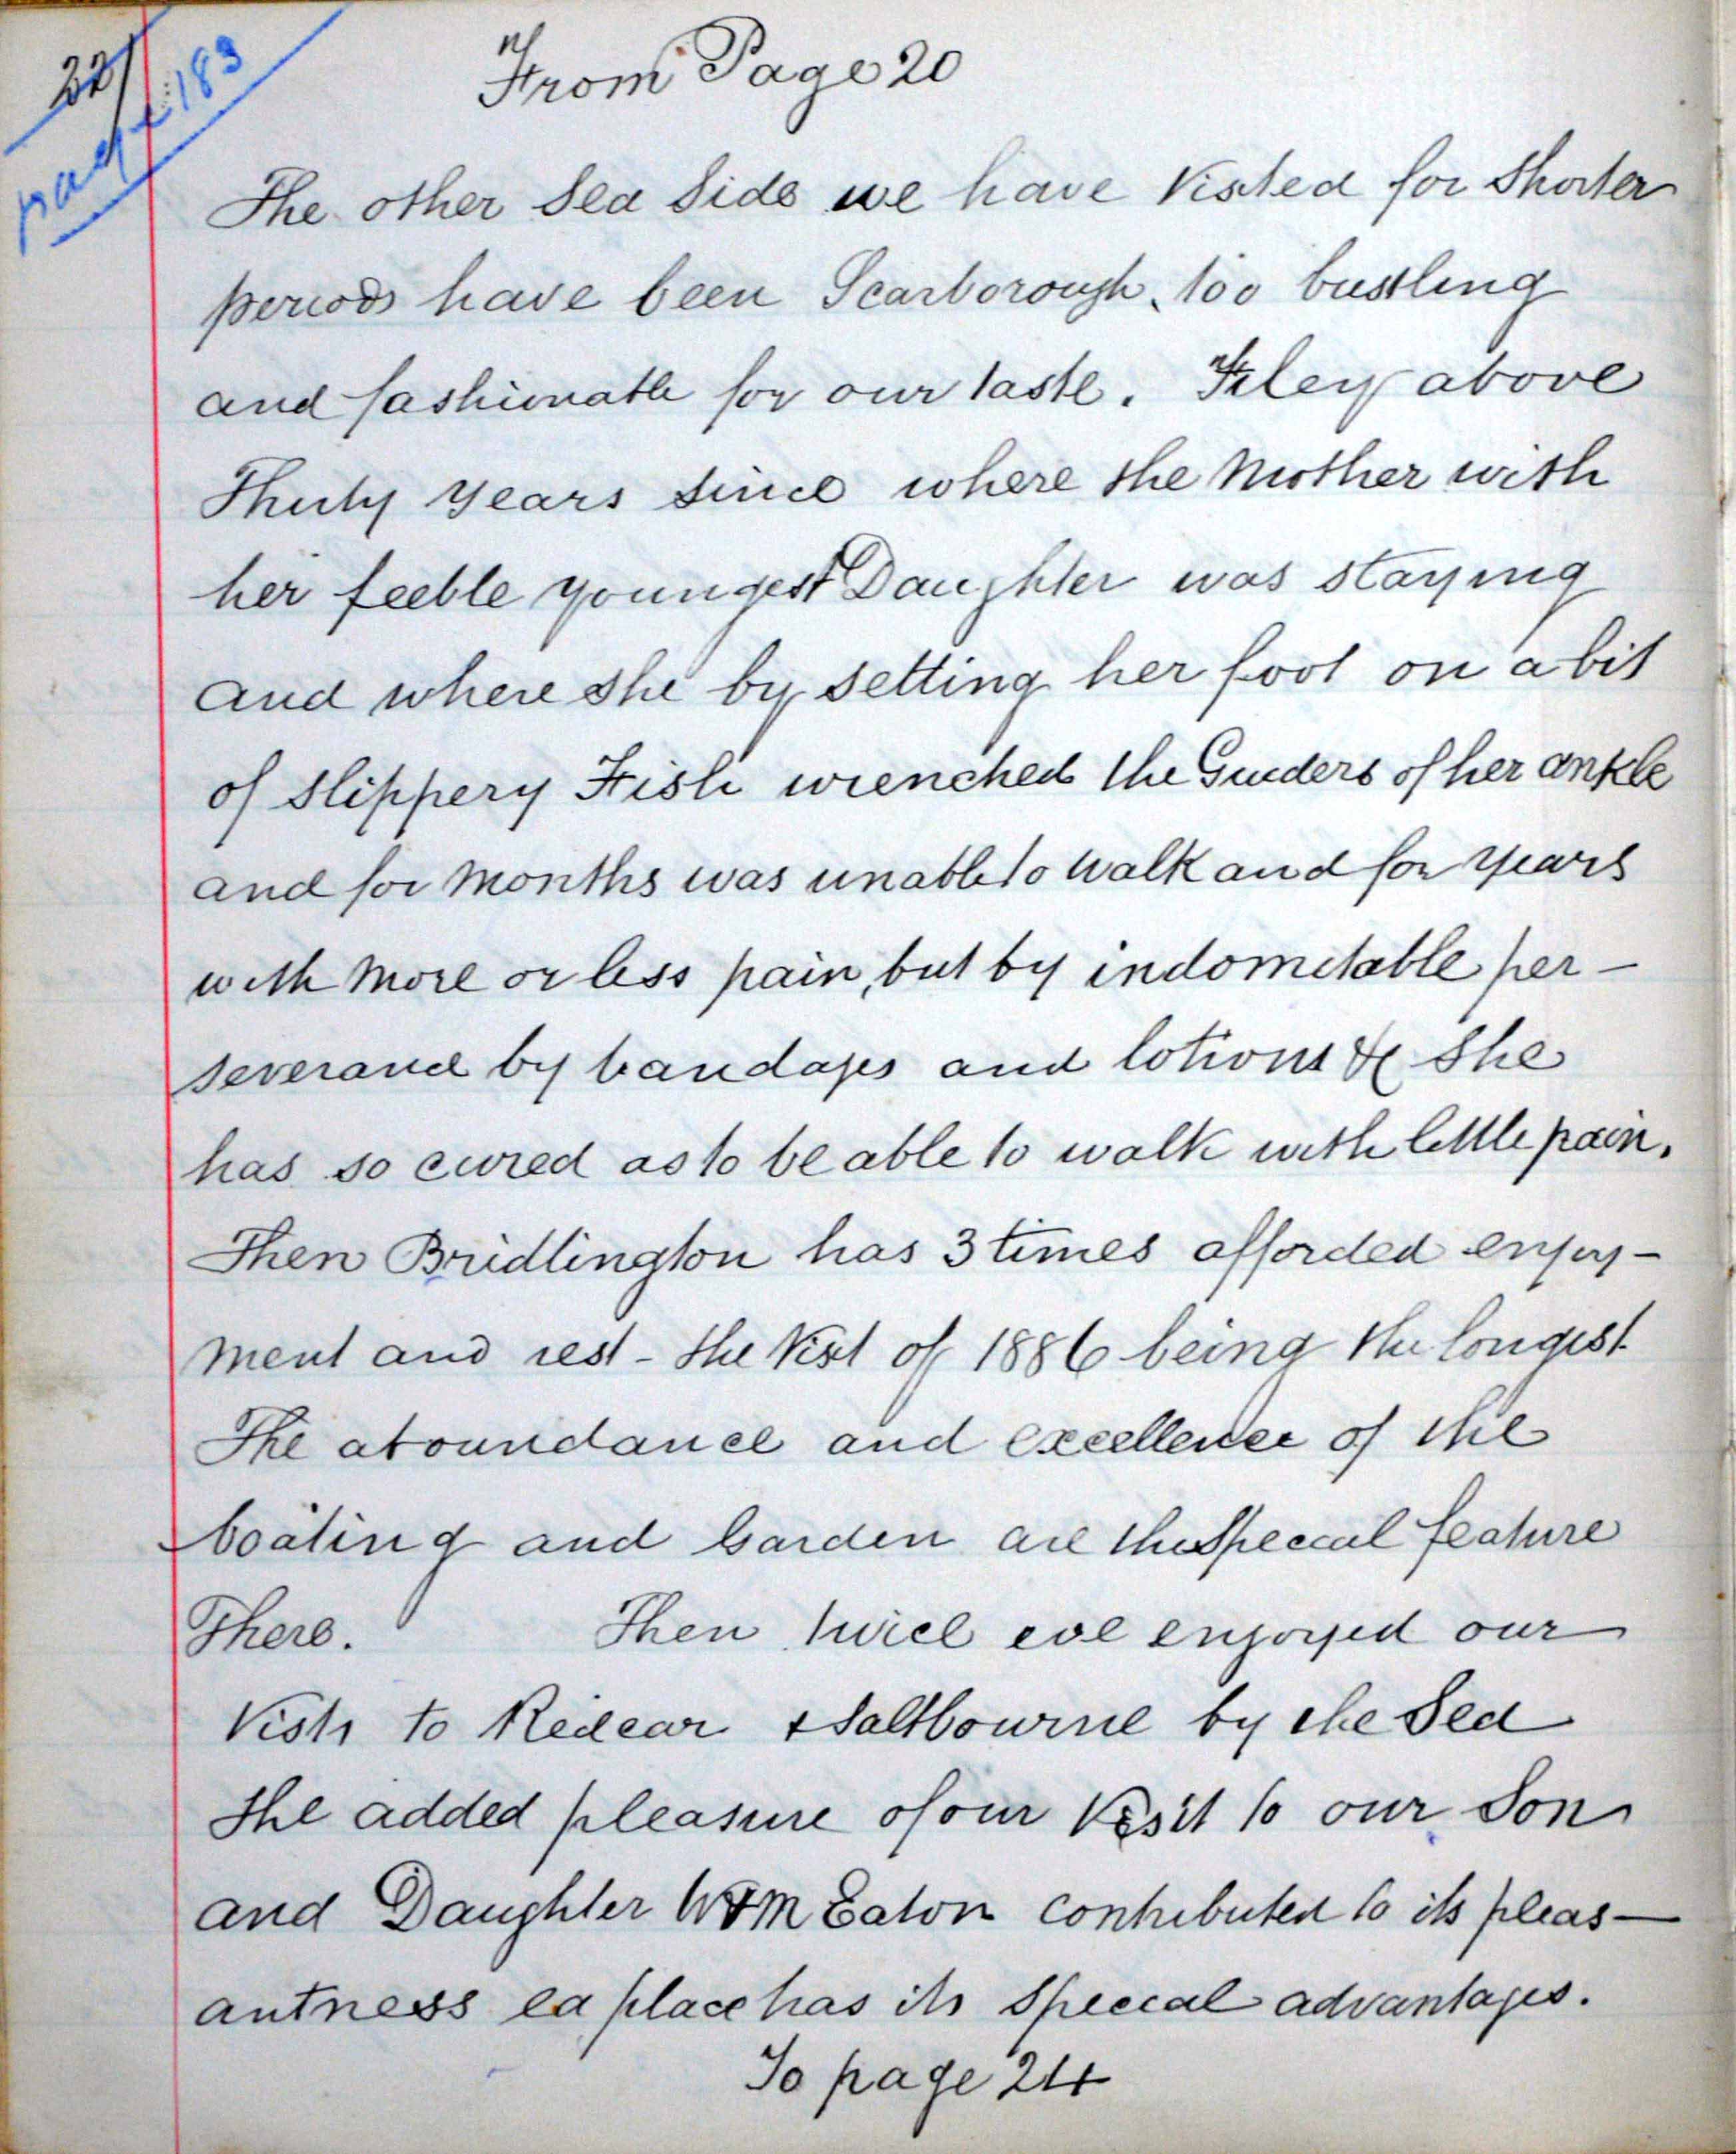 22
page 183
From Page 20
The other Sea Side we have Visted for Shorter
periods have been Scarborough, too bustling
and fashionable for our taste. Filey above
Thirty years since where the Mother with
her feeble youngest Daughter was staying
and where she by setting her foot on a bit
of slippery Fish wrenched the Guiders of her ankle
and for Months was unable to Walk and for years
with More or less pain, but by indomitable per-
severance by bandages and lotions &c She
has so cured as to be able to walk with little pain.
Then Bridlington has 3 times afforded enjoy-
ment and rest - the Visit of 1886 being the longest
The aboundance and excellence of the
boating and Garden are the Special feature
There. Then twice we enjoyed our
Visits to Redcar & Saltbourne by the Sea
the added pleasure of our Visit to our Son
and Daughter Eaton contributed to its pleas-
antness ea place has its Special advantages.
To page 24